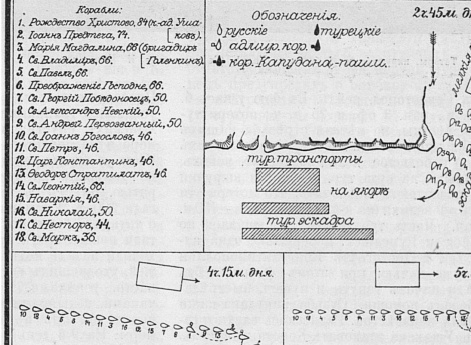 Корабли:
1. Рождество Христово, 84 (к-ад. Уша-
[ковъ).
2. Іоаннъ Предтеча, 74.
3. Марія Магдалина, 66 (бригадиръ
[Голенкинъ).
4. Св. Владиміръ, 66.
5. Св. Павелъ, 66.
6. Преображеніе Господне, 66.
7. Св. Георгій Побѣдоносецъ, 50.
8. Св. Александръ Невскій, 50.
9. Св. Андрей Первозванный, 50.
10. Св. Іоаннъ Богословъ, 46.
11. Св. Петръ, 46.
12. Царь Константинъ, 46.
13. Ѳеодоръ Стратилатъ, 46.
14. Св. Леонтій, 66.
15. Наваркія, 46.
16. Св. Николай, 50.
17. Св. Несторъ, 44.
18. Св. Маркъ, 36.
Обозначенія.
русскіе
турецкіе
адмир. кор.
кор. Капудана-паши.
2ч. 45м. д
мелкія
тур. транспорты
на якорѣ
тур. эскадра
4ч. 15м. дня.
5ч.